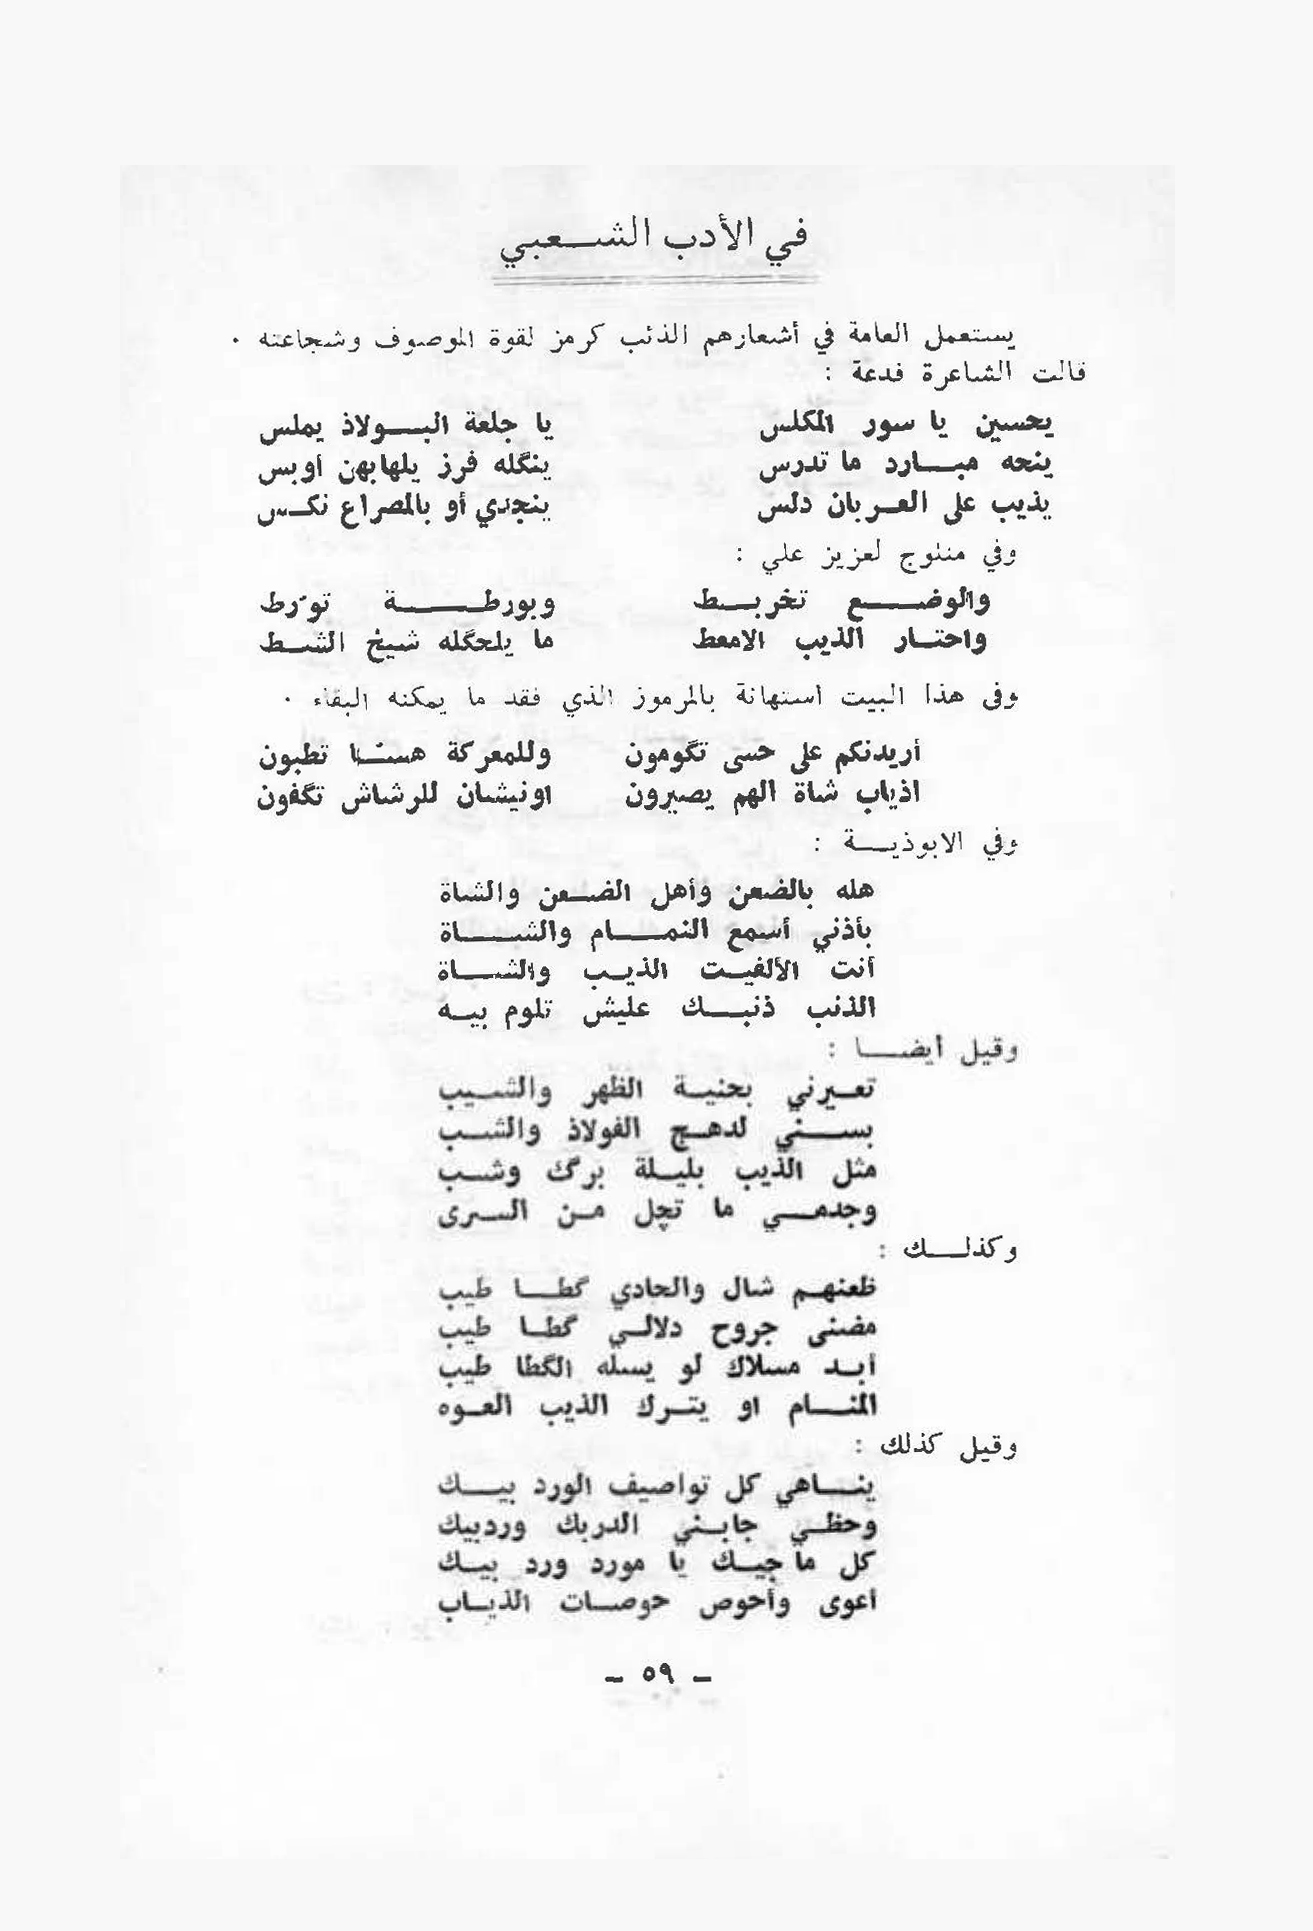 في الأدب الشعبي
يستعمل العامة في أشعارهم الذئب كرمز لقوة الموصوف وشجاعته .
قالت الشاعرة فدعة :
يحسين يا سور المكلس يا جلعة البولاذ يملس
ينحه مبارد ما تدرس ينگله فرز يلهابهن أوبس
يذيب على العربان دلس ينجدي أو بالمصراع نكس
وفي منلوج لعزيز علي :
والوضع تخربط وبورطة تورّط
واحتار الذيب الامعط ما يلحگله شيخ الشط
وفى هذا البيت استهانة بالمرموز الذي فقد ما يمكنه البقاء .
أريدنكم على حسى تگومون وللمعركة هسّا تطبون
اذياب شاة الهم يصيرون اونيشان للرشاش تگفون
وفي الابوذية :
هله بالضعن وأهل الضعن والشاة
بأذني أسمع النمام والشاة
أنت الألفيت الذيب والشاة
الذنب ذنبك عليش تلوم بيه
وقيل أيضا :
تعيرني بحنية الظهر والشيب
بسني لدهج الفولاذ والشب
مثل الذيب بليلة برگ وشب
وجدمي ما تچل من السرى
وكذلك :
ظعنهم شال والحادي گطا طيب
مضنى جروح دلالي گطا طيب
أبد مسلاك لو يسله الگطا طيب
المنام او يترك الذيب العوه
وقيل كذلك :
يناهي كل تواصيف الورد بيك
وحظي جابني الدربك وردبيك
كل ماجيك يا مورد ورد بيك
أعوى وأحوص حوصات الذياب
– ٥٩ –